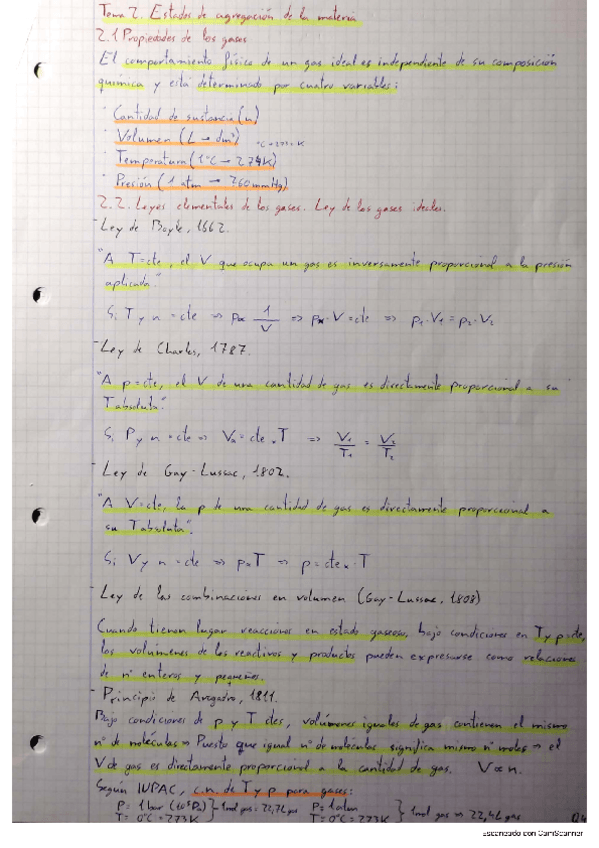 Tema 2. Estados de agregación de la materia
2.1 Propiedades de los gases
El comportamiento físico de un gas ideal es independiente de su composición
química y está determinado por cuatro variables:
Cantidad de sustancia (n)
Volumen (L → dm³)
Temperatura (1°C → 274K)
Presión (1 atm → 760 mmHg)
2.2. Leyes elementales de los gases. Ley de los gases ideales.
- Ley de Boyle, 1662.
"A T=cte, el V que ocupa un gas es inversamente proporcional a la presión
aplicada."
Si T y n = cte ⇒ p∝ 1/V ⇒ p·V = cte ⇒ p₁·V₁ = p₂·V₂
- Ley de Charles, 1787.
"A p=cte, el V de una cantidad de gas es directamente proporcional a su
T absoluta".
Si P y n = cte ⇒ V = cte · T ⇒ V₁/T₁ = V₂/T₂
- Ley de Gay-Lussac, 1802.
"A V=cte, la p de una cantidad de gas es directamente proporcional a
su T absoluta".
Si V y n = cte ⇒ p∝T ⇒ p = cte · T
- Ley de las combinaciones en volumen (Gay-Lussac, 1808)
Cuando tienen lugar reacciones en estado gaseoso, bajo condiciones en T y p=cte,
los volúmenes de los reactivos y productos pueden expresarse como relaciones
de nº enteros y pequeños.
- Principio de Avogadro, 1811.
Bajo condiciones de p y T ctes, volúmenes iguales de gas contienen el mismo
nº de moléculas ⇒ Puesto que igual nº de moléculas significa mismo nº moles ⇒ el
V de gas es directamente proporcional a la cantidad de gas. V ∝ n.
Según IUPAC, c.n. de T y p para gases:
P = 1 bar (10⁵Pa) } 1mol gas = 22,7L gas P = 1 atm } 1mol gas ⇒ 22,4L gas
T = 0°C = 273K T = 0°C = 273K
Escaneado con CamScanner